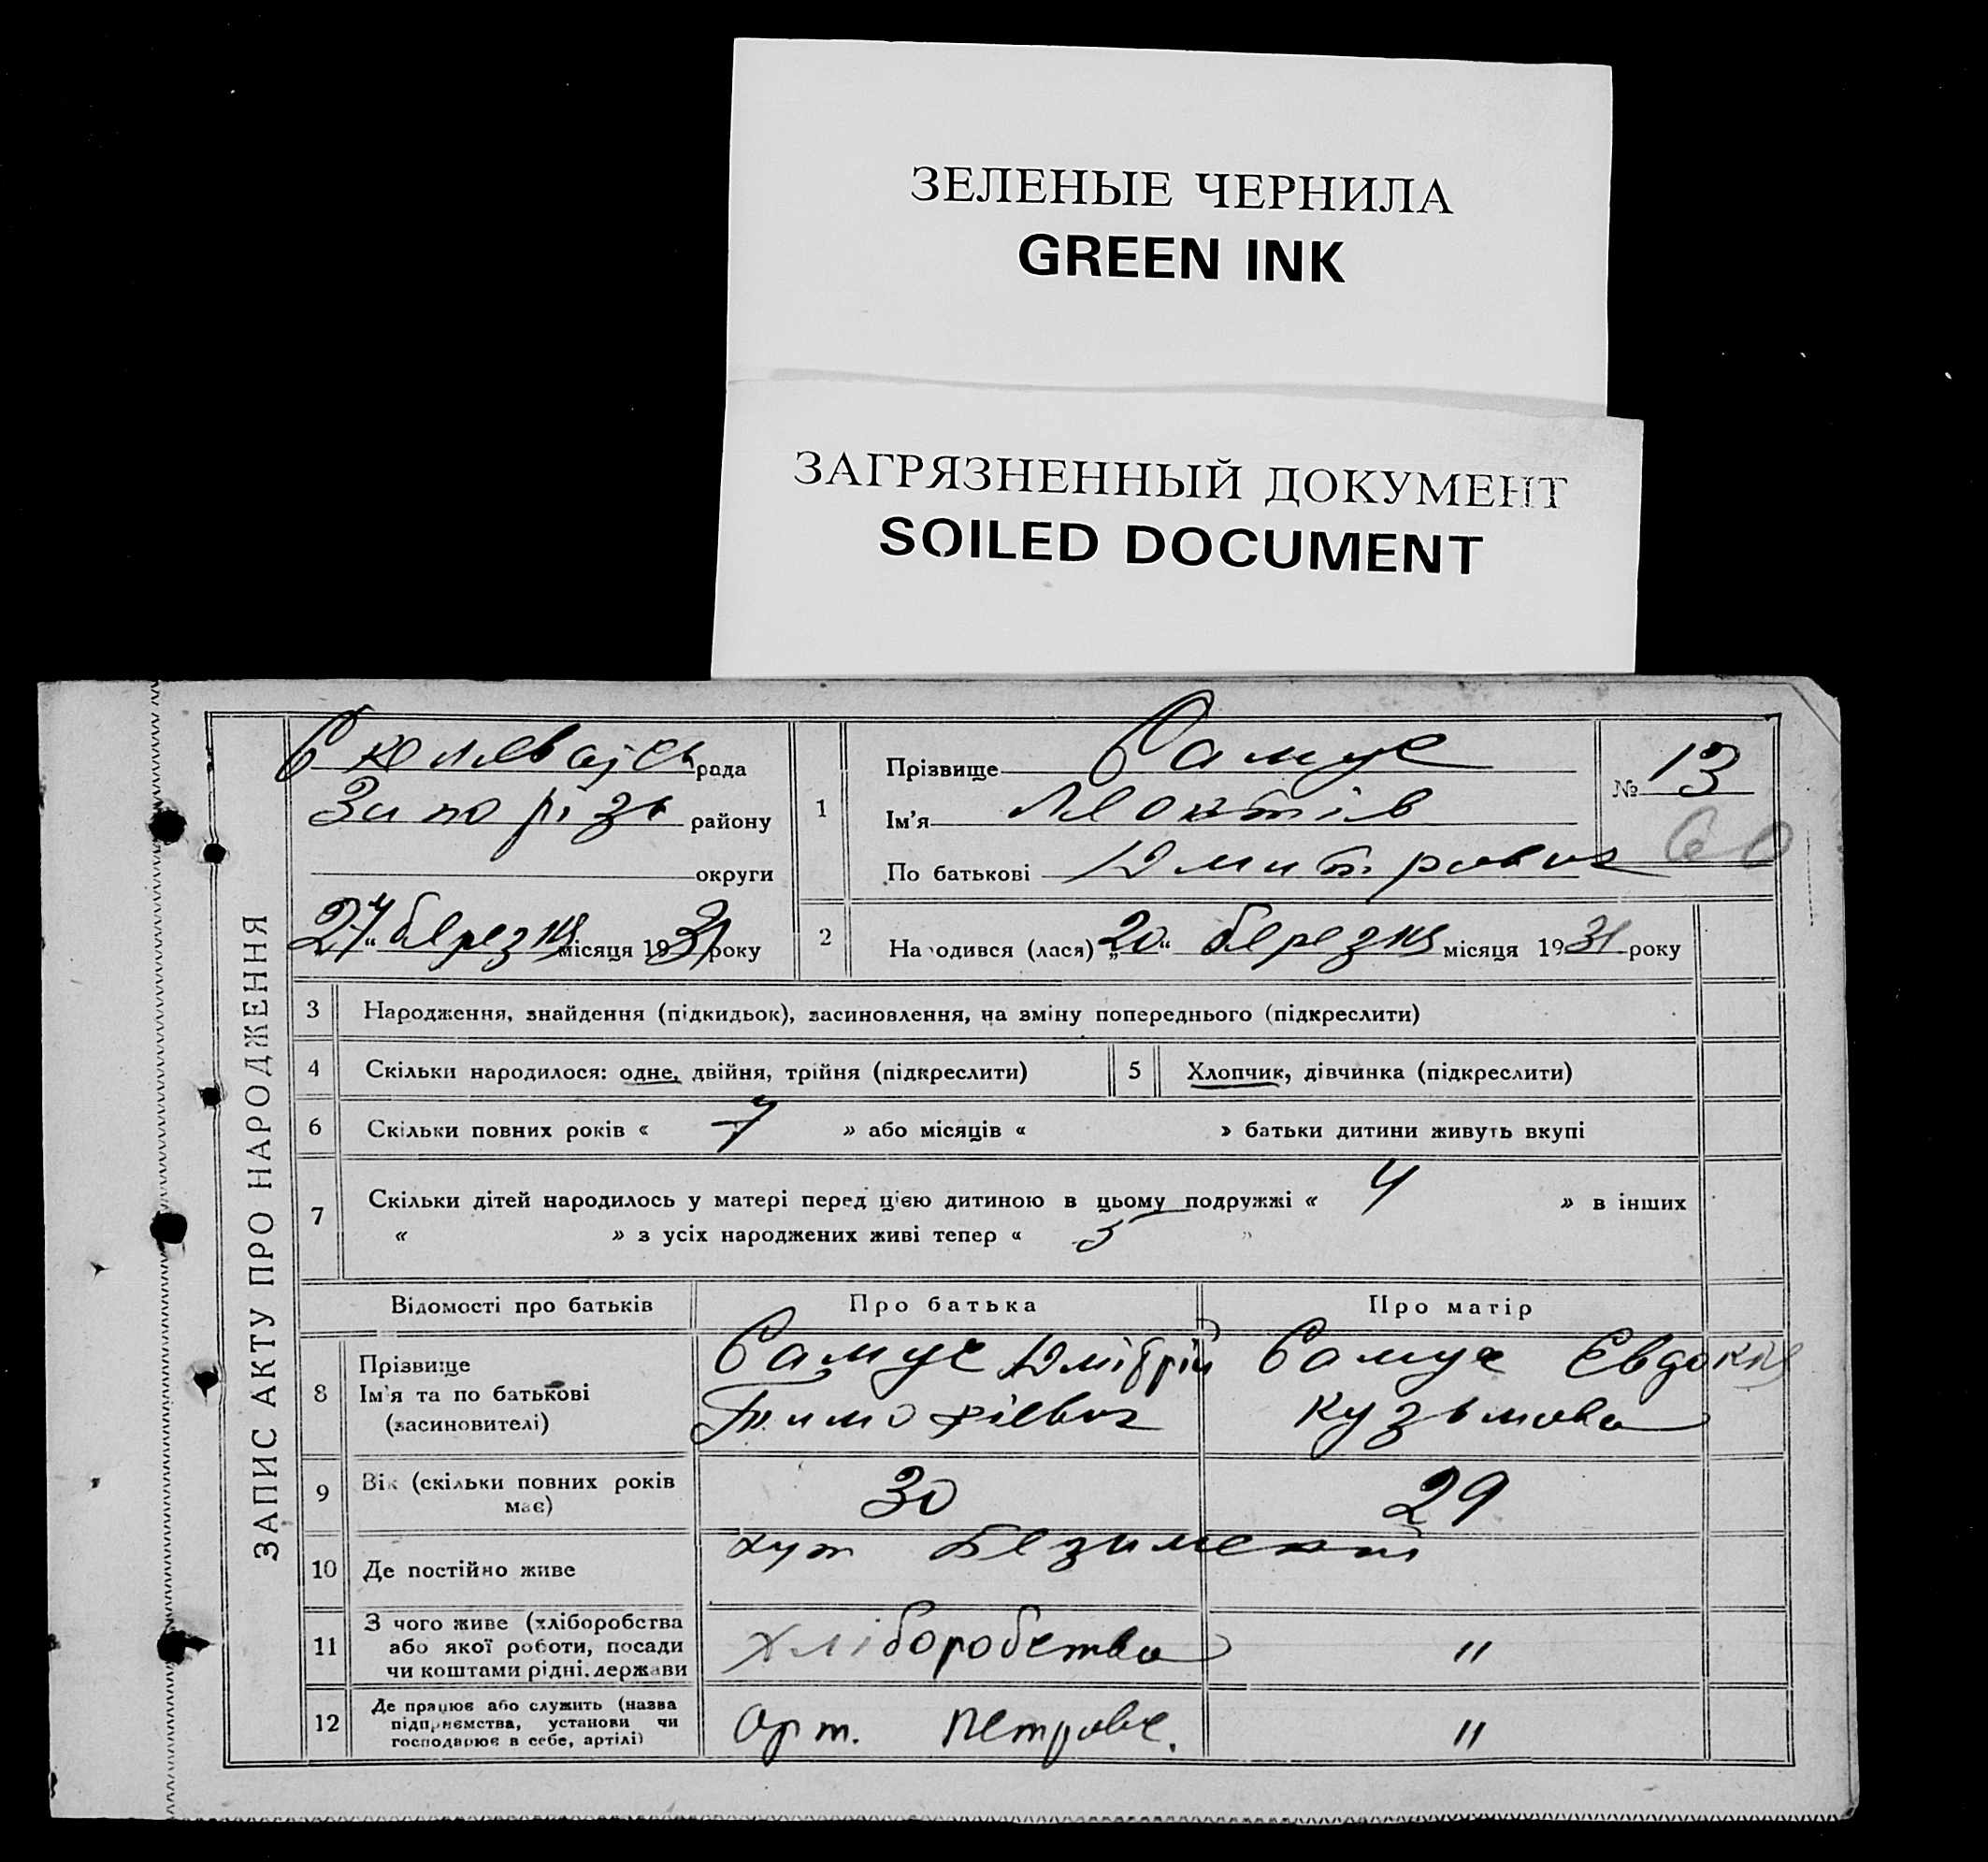 ЗЕЛЕНЫЕ ЧЕРНИЛА
GREEN INK
ЗАГРЯЗНЕННЫЙ ДОКУМЕНТ
SOILED DOCUMENT
ЗАПИС АКТУ ПРО НАРОДЖЕННЯ
рада
Запорізь району
округи
березня місяця 1931 року
1 Прізвище Самус
Ім'я
По батькові Дмитрович
№ 13
60
2 Народився (лася) „20“ березня місяця 1931 року
3 Народження, знайдення (підкидьок), засиновлення, на зміну попереднього (підкреслити)
4 Скільки народилося: одне, двійня, трійня (підкреслити)
5 Хлопчик, дівчинка (підкреслити)
6 Скільки повних років « 7 » або місяців « » батьки дитини живуть вкупі
7 Скільки дітей народилось у матері перед цією дитиною в цьому подружжі « 4 » в інших
« » з усіх народжених живі тепер « 5 »
Відомості про батьків Про батька Про матір
8 Прізвище
Ім'я та по батькові
(засиновителі)
Самус Дмітрій
Тимофієвич
Самус Євдокия
Кузьмова
9 Вік (скільки повних років
має)
30 29
10 Де постійно живе
хут
11 З чого живе (хліборобства
або якої роботи, посади
чи коштами рідні, держави
хліборобства "
12 Де працює або служить (назва
підприємства, установи чи
господарює в себе, артілі)
Арт. Петровс. "